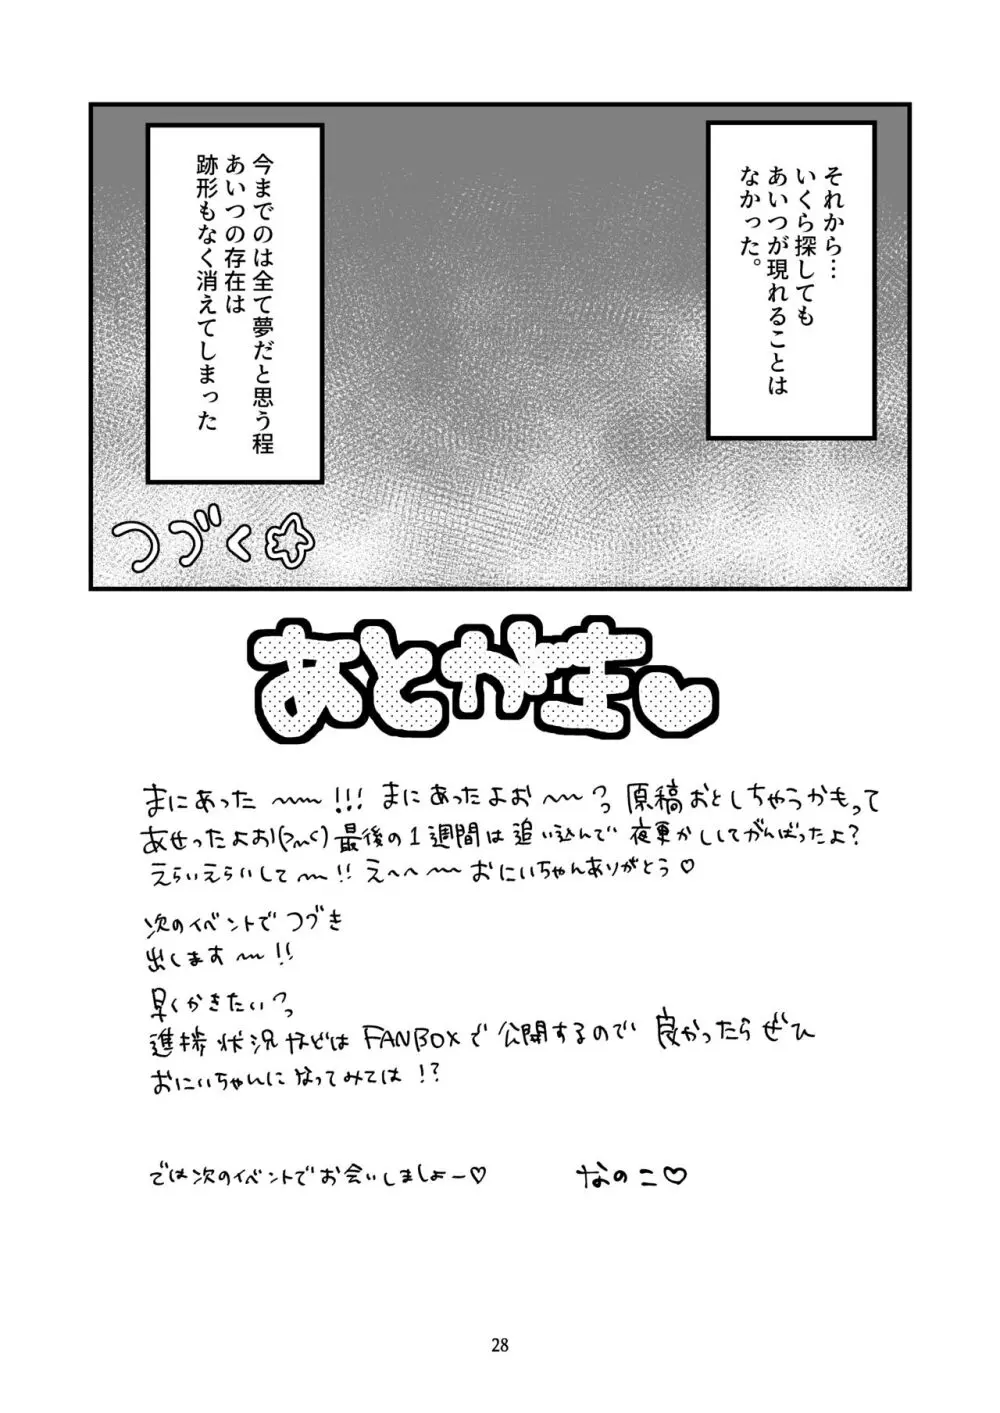 それから…
いくら探しても
あいつが現れることは
なかった。
今までのは全て夢だと思う程
あいつの存在は
跡形もなく消えてしまった
つづく☆
あとがき♡
まにあった〜〜!!! まにあったよお〜〜っ 原稿おとしちゃうかもって
あせったよお! 最後の1週間は追い込んで 夜更かししてがんばったよ?
えらいえらいして〜!! え〜〜〜おにいちゃんありがとう♡
次のイベントでつづき
出します〜!!
早くかきたいっ
進捗状況などはFANBOXで公開するので 良かったらぜひ
おにいちゃんになってみては!?
では次のイベントでお会いしましょー♡
なのこ♡
28